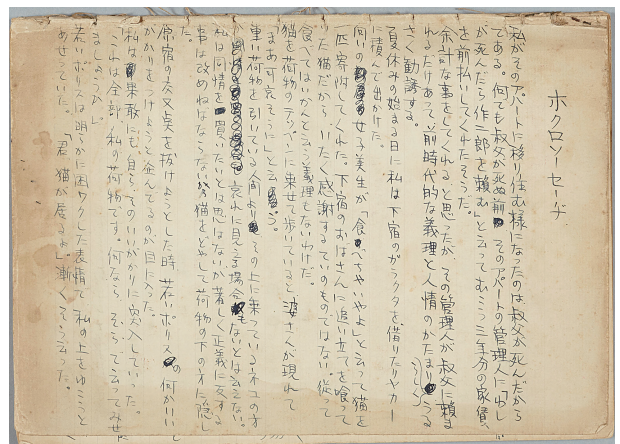 ホクロソーセーヂ
私がそのアパートに移り住む様になったのは叔父が死んだから
である。何でも叔父が死ぬ前、そのアパートの管理人に「わしが
が死んだら作二郎を頼む」と云ってむこう三年分の家賃
を前払いしてくれたそうだ。
余計な事をしてくれると思ったが、その管理人が叔父に頼ま
れるだけあって前時代的な義理と人情のかたまり うる
さく勧誘する。
夏休みの始まる日に私は下宿のガラクタを借りたリヤカー
に積んで出かけた。
向いの 女子美生が「食べちゃいやよ」と云って猫を
一匹寄付してくれた。下宿のおばさんに追い立てを喰って
いた猫だから、いたく感謝するていのものではない。従って
食べてはいかんと云う義理もないわけだ。
猫を荷物のテッペンに乗せて歩いていると婆さんが現れて
「まあ可哀そうに」と云う。
重い荷物を引いている人間より、その上に乗っているネコの方
が 哀れに見える場合もないとは云えない。
私は同情を買いたいとは思はないが著しく正義に反する
事は改めねばならない。猫をどかして荷物の下の方に隠し
た。
原宿の交叉点を抜けようとした時、若いポリスの何かいい
がかりをつけようと企んでるのが目に入った。
私は果敢にも自らそのいいがかりに突入していった。
「これは全部、私の荷物です。何なら、そう云ってみせ
ましょうか」
若いポリスは明らかに困ワクした表情で私の上をゆこうと
あせっていた。「君、猫が居るよ」漸くそう云った。